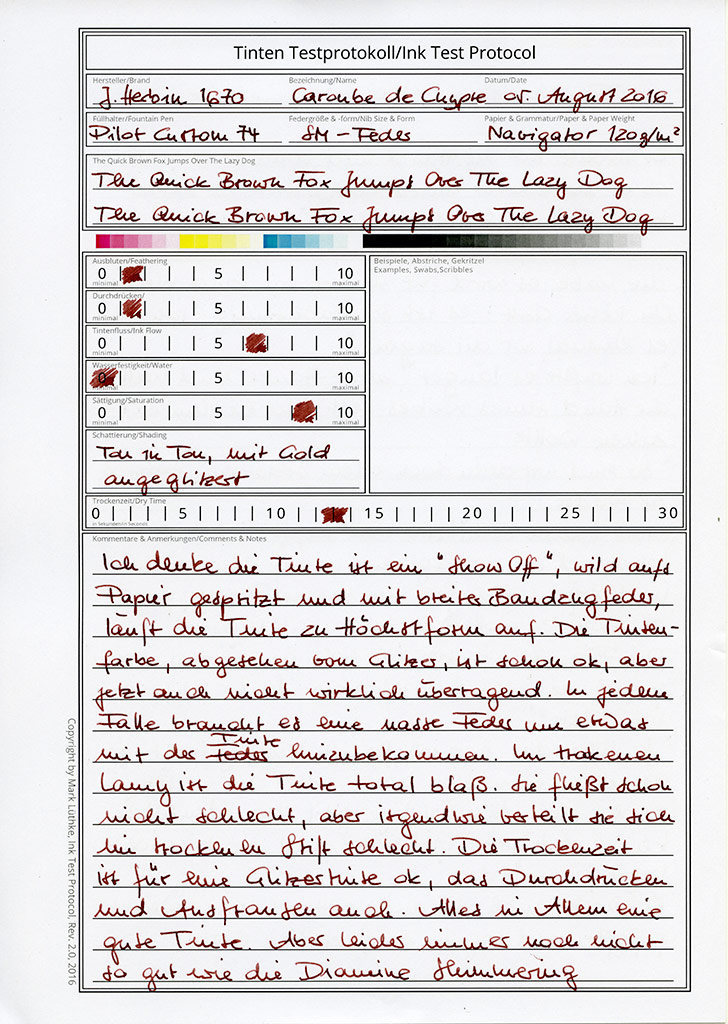 Tinten Testprotokoll/Ink Test Protocol
Hersteller/Brand Bezeichnung/Name Datum/Date
J. Herbin 1670 Caroube de Chypre 05. August 2016
Füllhalter/Fountain Pen Federgröße & -form/Nib Size & Form Papier & Grammatur/Paper & Paper Weight
Pilot Custom 74 SM - Feder Navigator 120g/m²
The Quick Brown Fox Jumps Over The Lazy Dog
The Quick Brown Fox Jumps Over The Lazy Dog
The Quick Brown Fox Jumps Over The Lazy Dog
Ausbluten/Feathering
0 5 10
minimal maximal
Durchdrücken/
0 5 10
minimal maximal
Tintenfluss/Ink Flow
0 5 10
minimal maximal
Wasserfestigkeit/Water
0 5 10
minimal maximal
Sättigung/Saturation
0 5 10
minimal maximal
Schattierung/Shading
Ton in Ton, mit Gold
angeglitzert
Beispiele, Abstriche, Gekritzel
Examples, Swabs,Scribbles
Trockenzeit/Dry Time
0 5 10 15 20 25 30
in Sekunden/in Seconds
Kommentare & Anmerkungen/Comments & Notes
Ich denke die Tinte ist ein "Show Off", wild aufs
Papier gespritzt und mit breiter Bandzugfeder,
läuft die Tinte zu Höchstform auf. Die Tinten-
farbe, abgesehen vom Glitzer, ist schon ok, aber
jetzt auch nicht wirklich überragend. In jedem
Falle braucht es eine nasse Feder um etwas
mit der Feder Tinte hinzubekommen. Im trokenen
Lamy ist die Tinte total blaß. Sie fließt schon
nicht schlecht, aber irgendwie verteilt sie sich
im trocknen Stift schlecht. Die Trockenzeit
ist für eine Glitzertinte ok, das Durchdrücken
und Ausfransen auch. Alles in Allem eine
gute Tinte. Aber leider immer noch nicht
so gut wie die Diamine Shimmering
Copyright by Mark Lüthke, Ink Test Protocol, Rev. 2.0, 2016